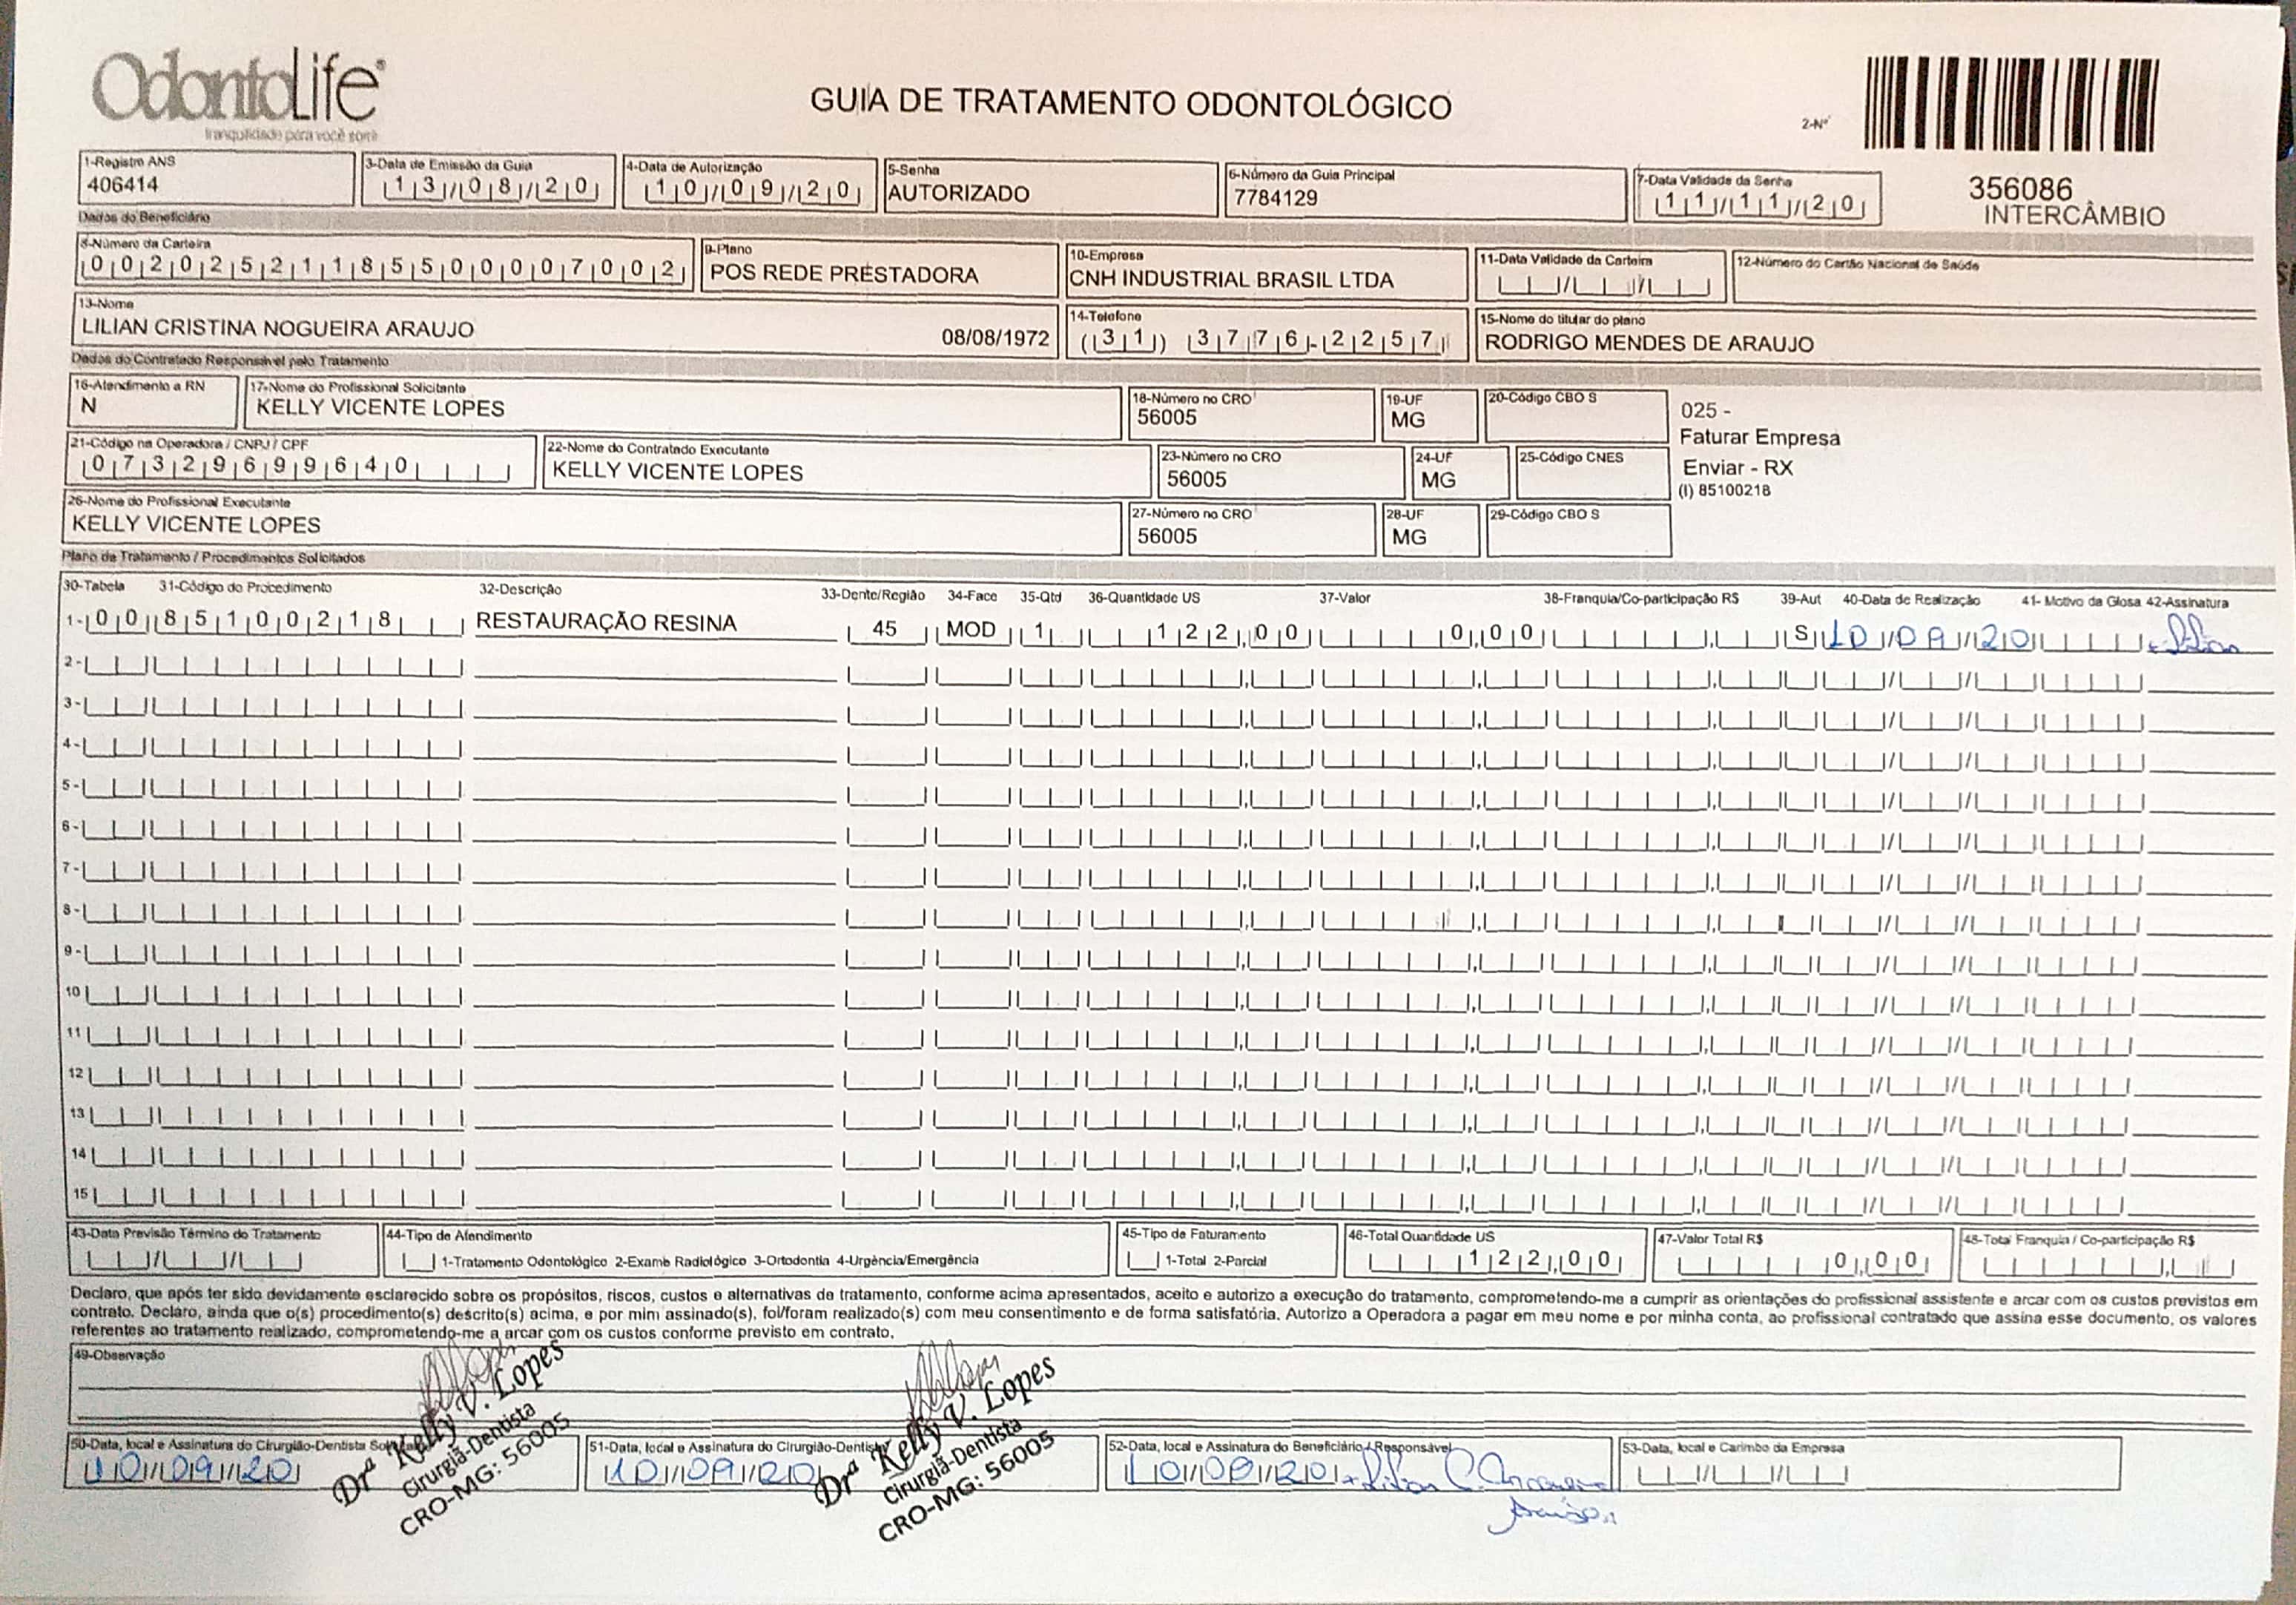 OdontoLife®
tranquilidade para você sorrir
GUIA DE TRATAMENTO ODONTOLÓGICO
2-Nº
356086
INTERCÂMBIO
1-Registro ANS
406414
3-Data de Emissão da Guia
13/08/20
4-Data de Autorização
10/09/20
5-Senha
AUTORIZADO
6-Número da Guia Principal
7784129
7-Data Validade da Senha
11/11/20
Dados do Beneficiário
8-Número da Carteira
00202521185500007002
9-Plano
POS REDE PRESTADORA
10-Empresa
CNH INDUSTRIAL BRASIL LTDA
11-Data Validade da Carteira
12-Número do Cartão Nacional de Saúde
13-Nome
LILIAN CRISTINA NOGUEIRA ARAUJO 08/08/1972
14-Telefone
(31) 3776-2257
15-Nome do titular do plano
RODRIGO MENDES DE ARAUJO
Dados do Contratado Responsável pelo Tratamento
16-Atendimento a RN
N
17-Nome do Profissional Solicitante
KELLY VICENTE LOPES
18-Número no CRO
56005
19-UF
MG
20-Código CBO S
025 -
Faturar Empresa
Enviar - RX
(I) 85100218
21-Código na Operadora / CNPJ / CPF
07329699640
22-Nome do Contratado Executante
KELLY VICENTE LOPES
23-Número no CRO
56005
24-UF
MG
25-Código CNES
26-Nome do Profissional Executante
KELLY VICENTE LOPES
27-Número no CRO
56005
28-UF
MG
29-Código CBO S
Plano de Tratamento / Procedimentos Solicitados
30-Tabela 31-Código do Procedimento 32-Descrição 33-Dente/Região 34-Face 35-Qtd 36-Quantidade US 37-Valor 38-Franquia/Co-participação R$ 39-Aut 40-Data de Realização 41- Motivo da Glosa 42-Assinatura
1- 00 85100218 RESTAURAÇÃO RESINA 45 MOD 1 122,00 0,00 S 10/09/20 Lilian
2-
3-
4-
5-
6-
7-
8-
9-
10
11
12
13
14
15
43-Data Previsão Término do Tratamento
44-Tipo de Atendimento
1-Tratamento Odontológico 2-Exame Radiológico 3-Ortodontia 4-Urgência/Emergência
45-Tipo de Faturamento
1-Total 2-Parcial
46-Total Quantidade US
122,00
47-Valor Total R$
0,00
48-Total Franquia / Co-participação R$
Declaro, que após ter sido devidamente esclarecido sobre os propósitos, riscos, custos e alternativas de tratamento, conforme acima apresentados, aceito e autorizo a execução do tratamento, comprometendo-me a cumprir as orientações do profissional assistente e arcar com os custos previstos em
contrato. Declaro, ainda que o(s) procedimento(s) descrito(s) acima, e por mim assinado(s), foi/foram realizado(s) com meu consentimento e de forma satisfatória. Autorizo a Operadora a pagar em meu nome e por minha conta, ao profissional contratado que assina esse documento, os valores
referentes ao tratamento realizado, comprometendo-me a arcar com os custos conforme previsto em contrato.
49-Observação
50-Data, local e Assinatura do Cirurgião-Dentista
10/09/20
Drª Kelly V. Lopes
Cirurgiã-Dentista
CRO-MG: 56005
51-Data, local e Assinatura do Cirurgião-Dentista
10/09/20
Drª Kelly V. Lopes
Cirurgiã-Dentista
CRO-MG: 56005
52-Data, local e Assinatura do Beneficiário / Responsável
10/09/20 Lilian C. Nogueira
Araújo
53-Data, local e Carimbo da Empresa